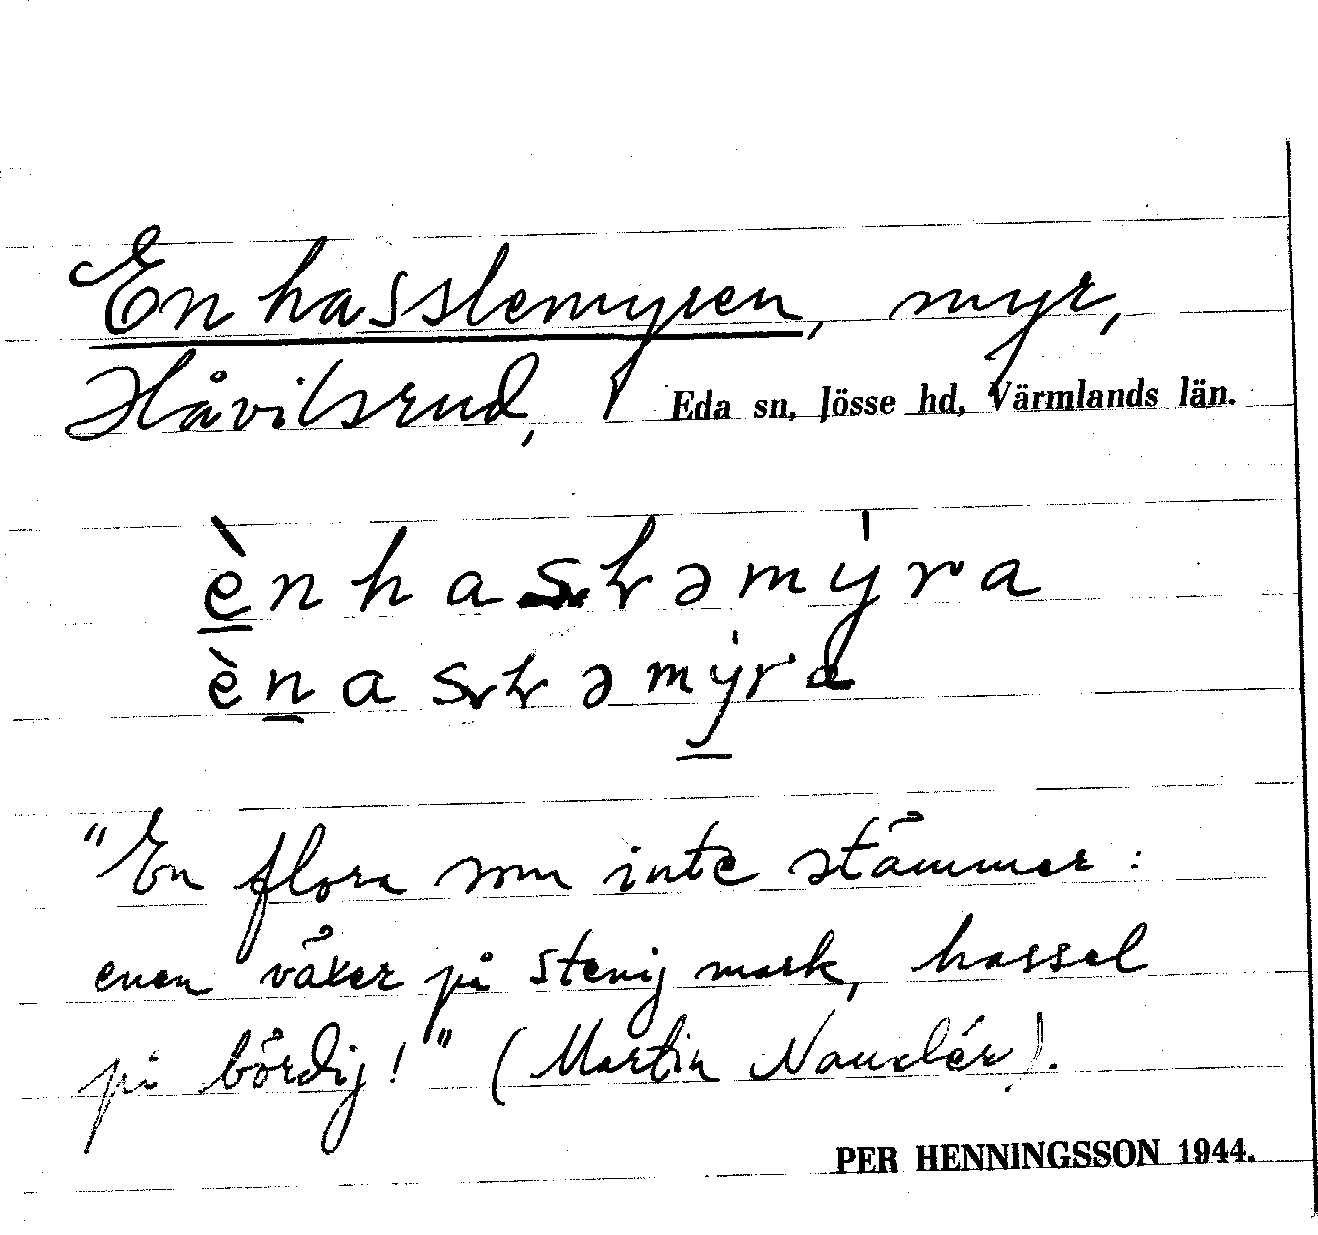 Enhasslemyren, myr,
Håvilsrud, Eda sn, Jösse hd, Värmlands län.
"En flora som inte stämmer:
enen växer på stenig mark, hassel
på bördig!" (Martin Nauclér).
PER HENNINGSSON 1944.